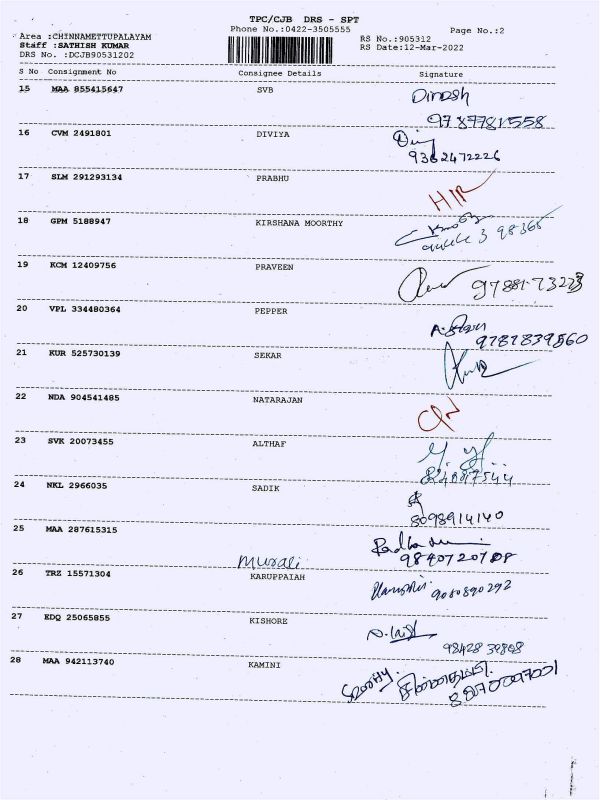 TPC/CJB DRS - SPT
Phone No.:0422-3505555
Page No.:2
Area :CHINNAMETTUPALAYAM
Staff :SATHISH KUMAR
DRS No. :DCJB90531202
RS No.:905312
RS Date:12-Mar-2022
S No Consignment No Consignee Details Signature
15 MAA 855415647 SVB Dinesh
9787781558
16 CVM 2491801 DIVIYA
9362472226
17 SLM 291293134 PRABHU
18 GPM 5188947 KIRSHANA MOORTHY
19 KCM 12409756 PRAVEEN
9788173223
20 VPL 334480364 PEPPER
9787839560
21 KUR 525730139 SEKAR
22 NDA 904541485 NATARAJAN
23 SVK 20073455 ALTHAF
24 NKL 2966035 SADIK
8098914140
25 MAA 287615315
Murali
26 TRZ 15571304 KARUPPAIAH
9080890292
27 EDQ 25065855 KISHORE
28 MAA 942113740 KAMINI